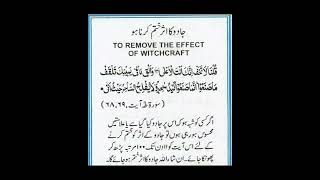 جادو کا اثر ختم کرنا ہو
TO REMOVE THE EFFECT
OF WITCHCRAFT
قُلْنَا لَا تَخَفْ إِنَّكَ أَنْتَ الْأَعْلٰى وَأَلْقِ مَا فِي يَمِينِكَ تَلْقَفْ
مَا صَنَعُوا إِنَّمَا صَنَعُوا كَيْدُ سَاحِرٍ وَلَا يُفْلِحُ السَّاحِرُ حَيْثُ أَتٰى
(سورۃ طٰہٰ آیت، ۶۸،۶۹)
اگر کسی کو شبہ ہو کہ اس پر جادو کیا گیا ہے یا علامتیں
محسوس ہو رہی ہوں تو جادو کے اثر کو ختم کرنے
کے لئے اس آیت کو ۱۱ دن تک ۱۰۰ مرتبہ پڑھ کر
پھونکا جائے۔ ان شاء اللہ جادو کا اثر ختم ہو جائے گا۔